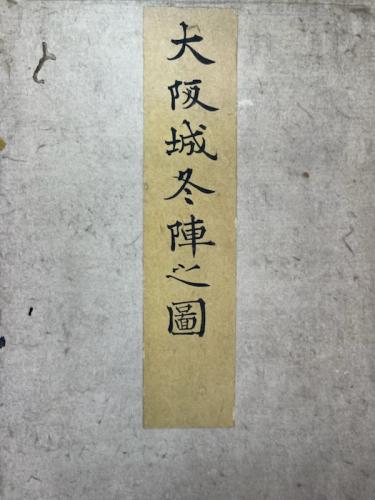 大阪城冬陣之圖